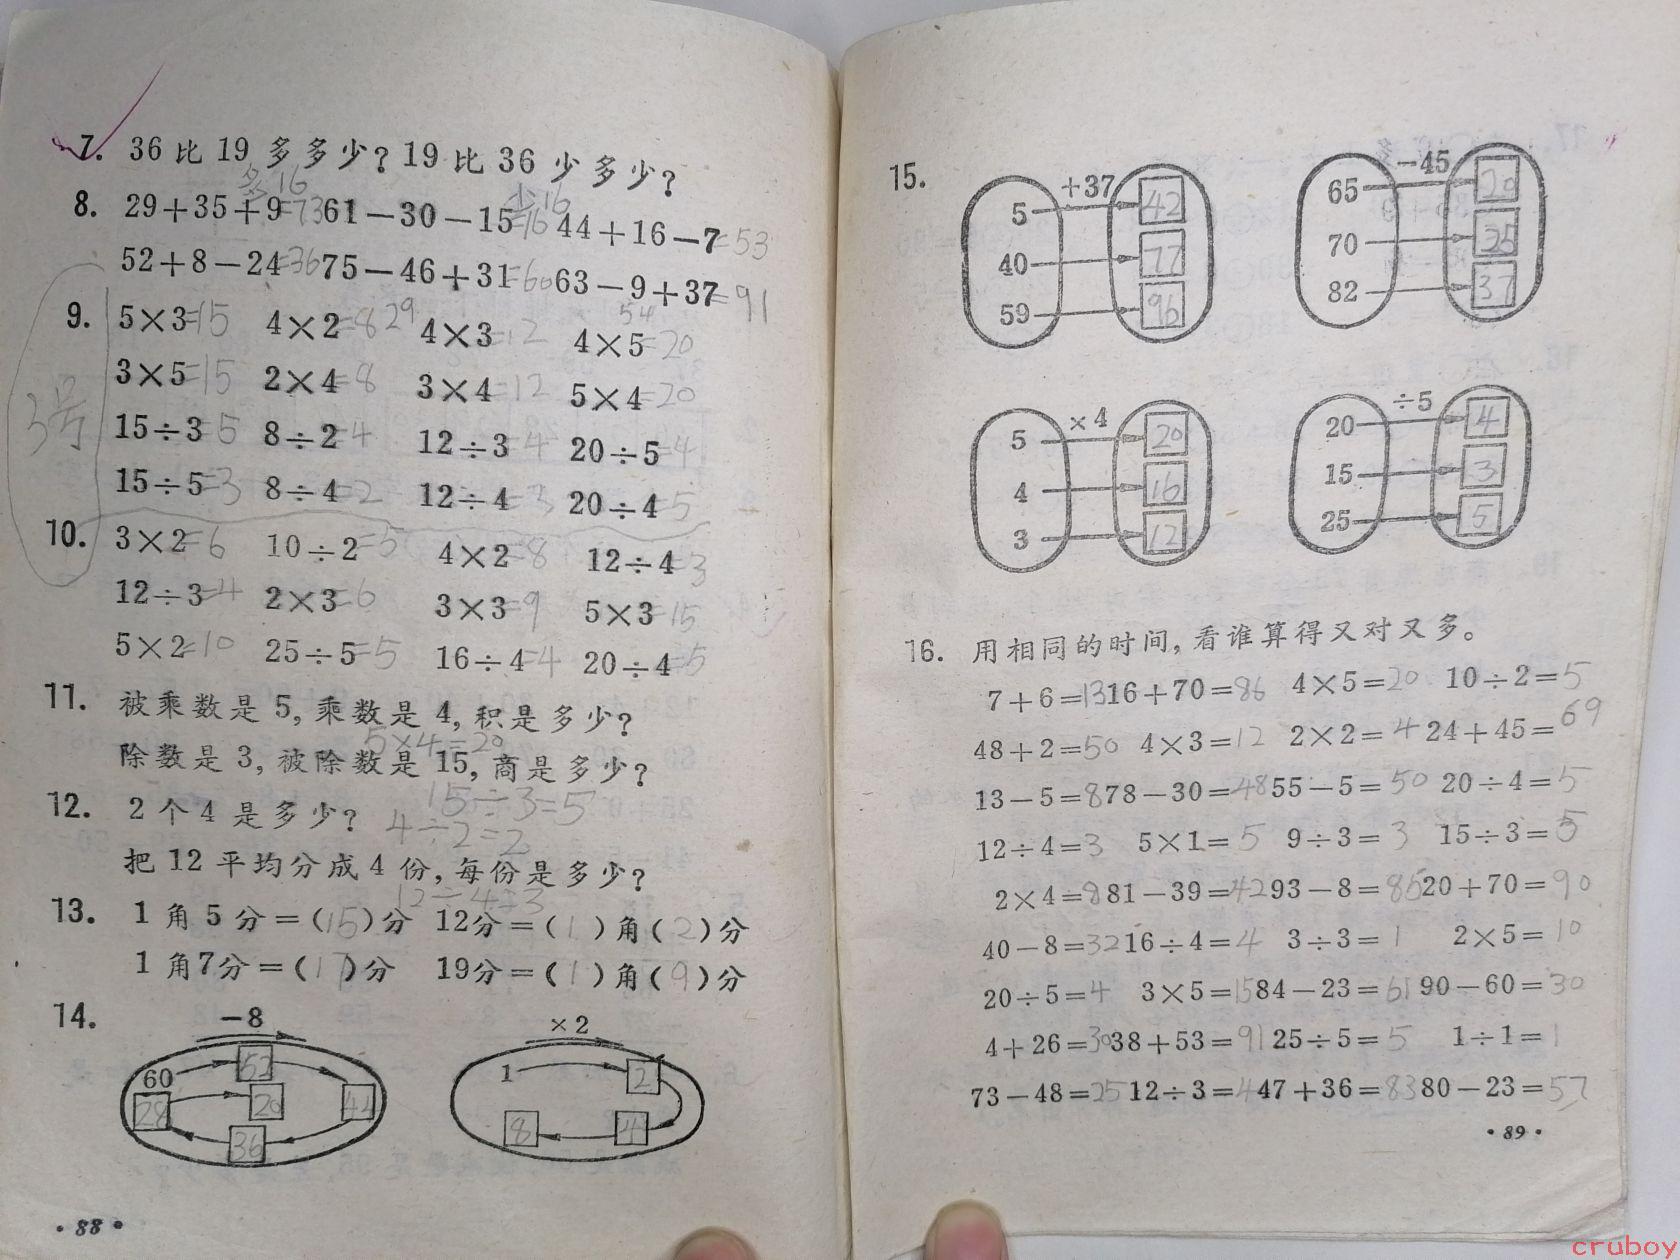 7. 36比19多多少?19比36少多少?
多16 少16
8. 29+35+9=73 61-30-15=16 44+16-7=53
52+8-24=36 75-46+31=60 63-9+37=91
29 54
9. 5×3=15 4×2=8 4×3=12 4×5=20
3×5=15 2×4=8 3×4=12 5×4=20
3号
15÷3=5 8÷2=4 12÷3=4 20÷5=4
15÷5=3 8÷4=2 12÷4=3 20÷4=5
10. 3×2=6 10÷2=5 4×2=8 12÷4=3
12÷3=4 2×3=6 3×3=9 5×3=15
5×2=10 25÷5=5 16÷4=4 20÷4=5
11. 被乘数是5,乘数是4,积是多少?
5×4=20
除数是3,被除数是15,商是多少?
15÷3=5
12. 2个4是多少?
4÷2=2
把12平均分成4份,每份是多少?
12÷4=3
13. 1角5分=(15)分 12分=(1)角(2)分
1角7分=(17)分 19分=(1)角(9)分
14. -8 ×2
60 52 1 2
28 20 44
36 8 4
·88·
15. +37 -45
5 42 65 20
40 77 70 25
59 96 82 37
×4 ÷5
5 20 20 4
4 16 15 3
3 12 25 5
16. 用相同的时间,看谁算得又对又多。
7+6=13 16+70=86 4×5=20 10÷2=5
48+2=50 4×3=12 2×2=4 24+45=69
13-5=8 78-30=48 55-5=50 20÷4=5
12÷4=3 5×1=5 9÷3=3 15÷3=5
2×4=8 81-39=42 93-8=85 20+70=90
40-8=32 16÷4=4 3÷3=1 2×5=10
20÷5=4 3×5=15 84-23=61 90-60=30
4+26=30 38+53=91 25÷5=5 1÷1=1
73-48=25 12÷3=4 47+36=83 80-23=57
·89·
cruboy